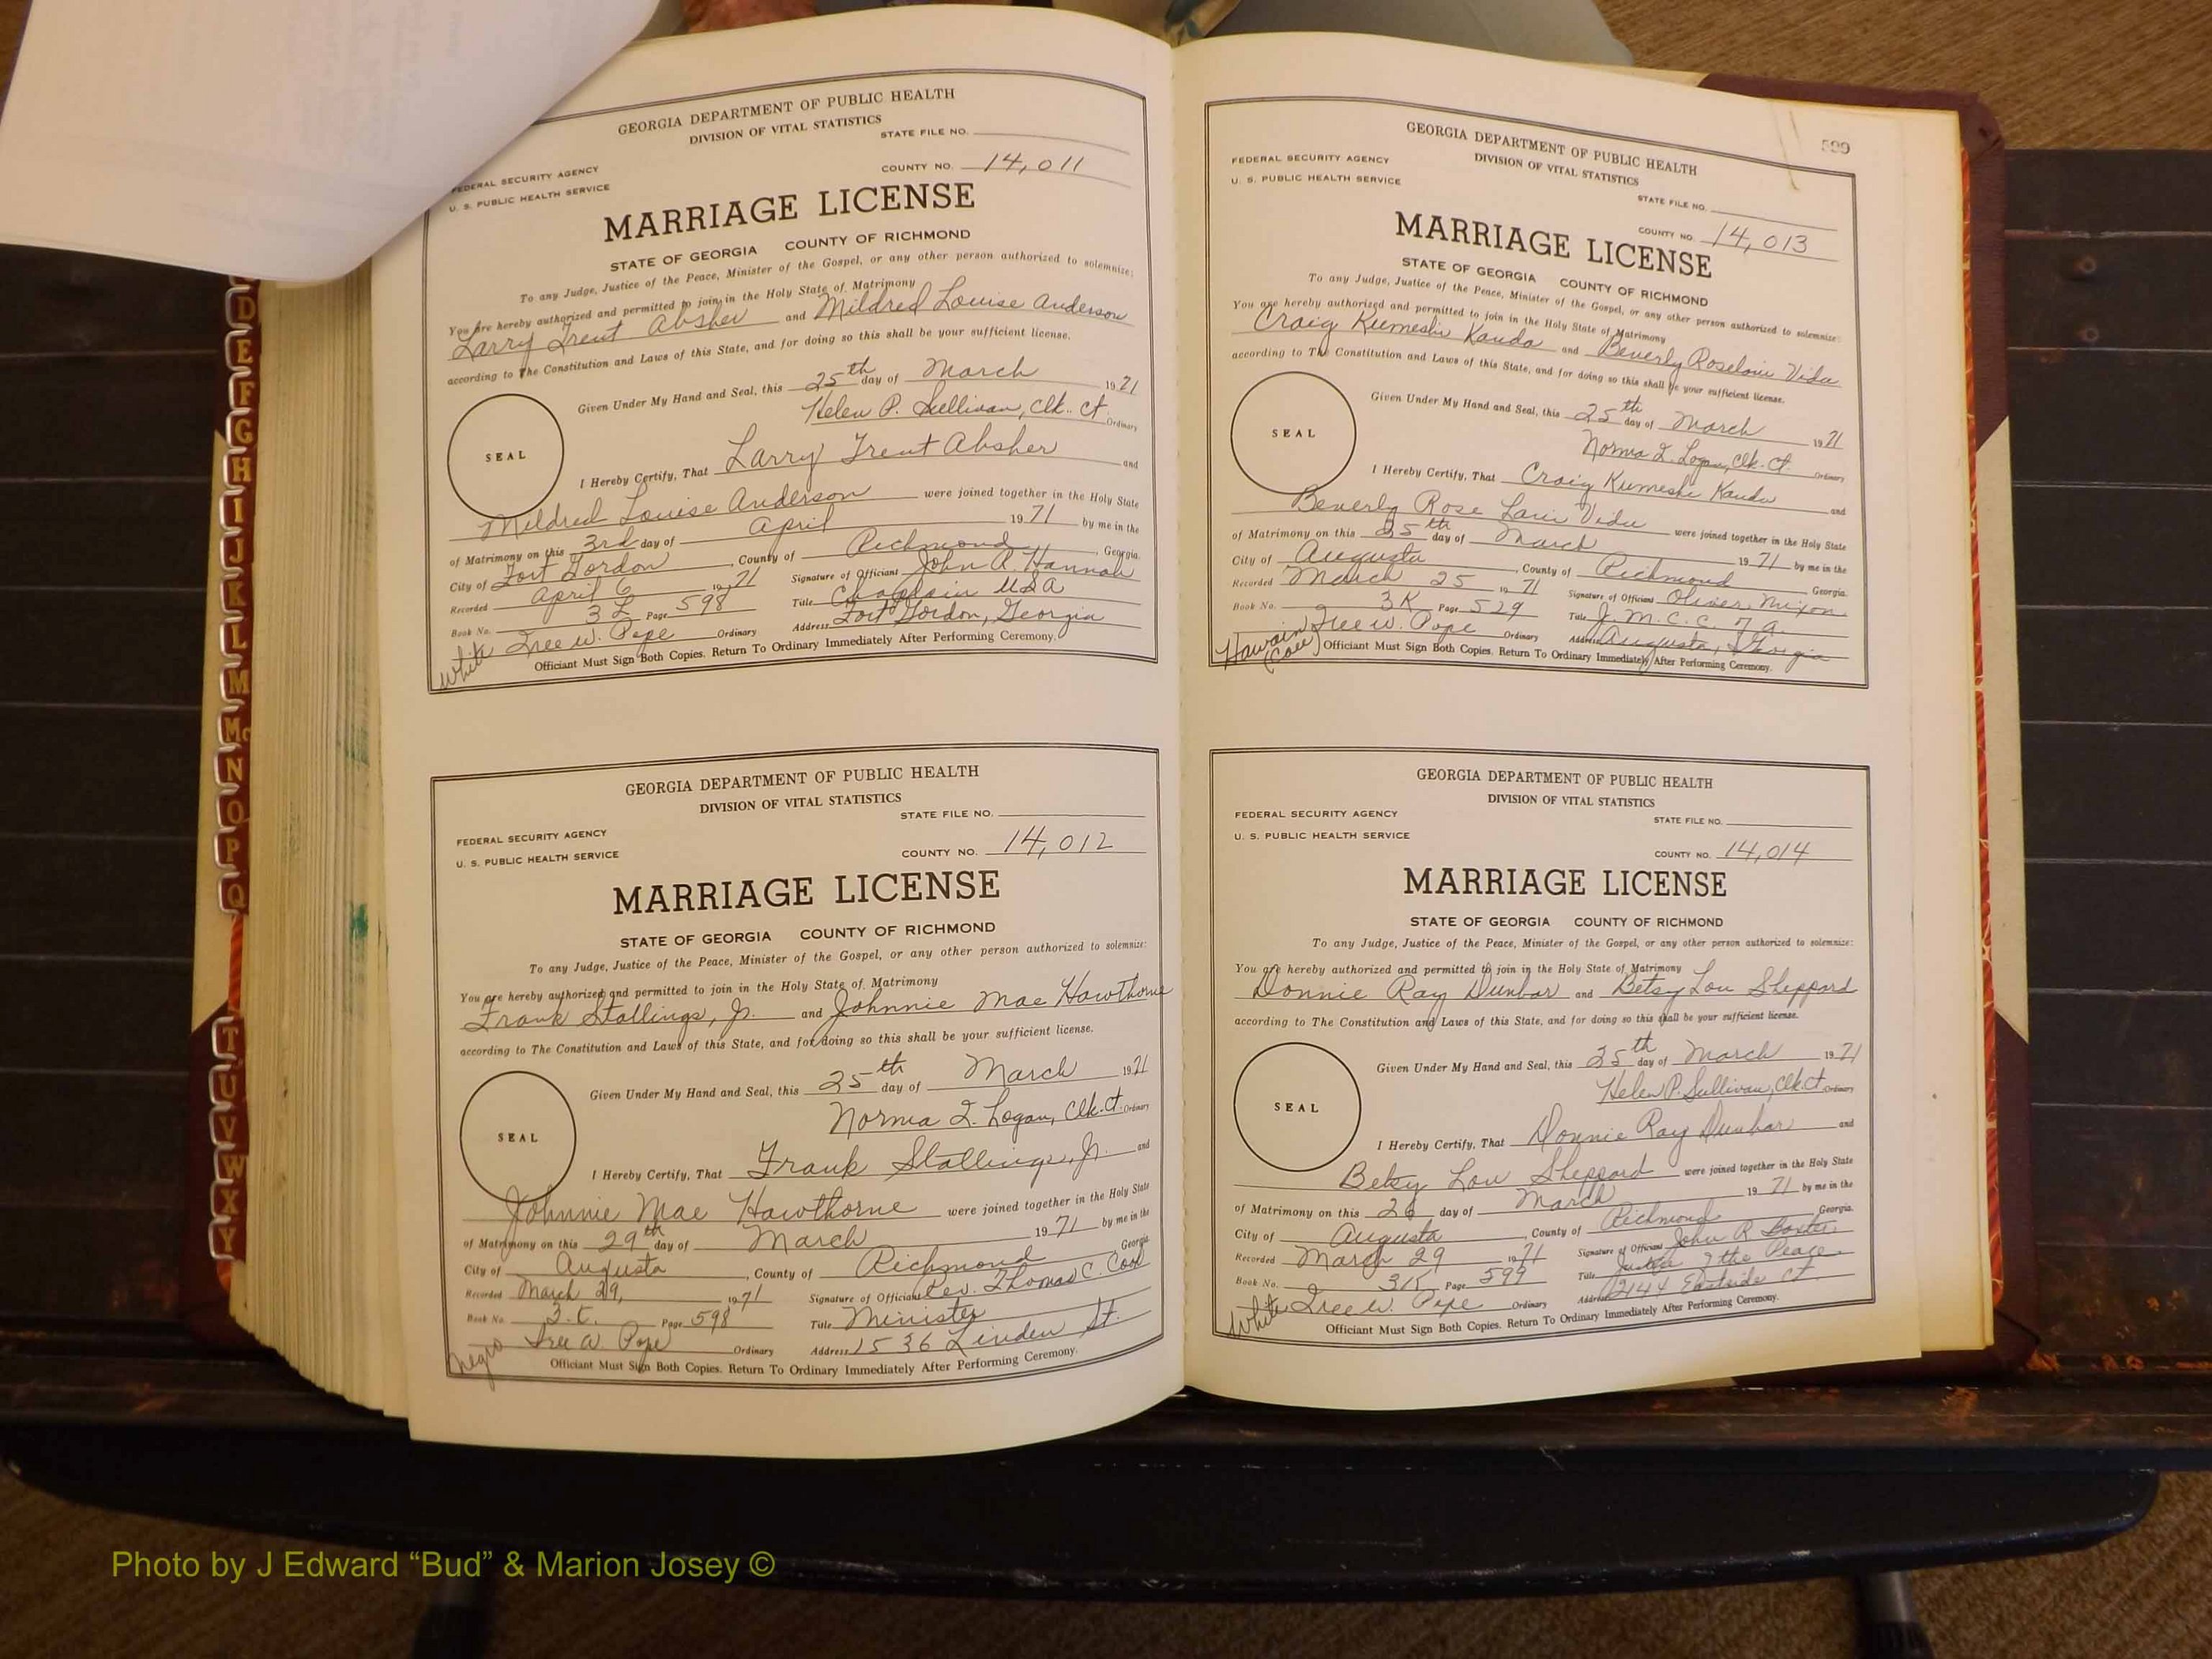 GEORGIA DEPARTMENT OF PUBLIC HEALTH
DIVISION OF VITAL STATISTICS
STATE FILE NO.
FEDERAL SECURITY AGENCY
U. S. PUBLIC HEALTH SERVICE
COUNTY NO. 14,011
MARRIAGE LICENSE
STATE OF GEORGIA COUNTY OF RICHMOND
To any Judge, Justice of the Peace, Minister of the Gospel, or any other person authorized to solemnize:
You are hereby authorized and permitted to join in the Holy State of Matrimony
Larry Trent Absher and Mildred Louise Anderson
according to The Constitution and Laws of this State, and for doing so this shall be your sufficient license.
Given Under My Hand and Seal, this 25th day of March 1971
Helen P. Sullivan, Clk. Ct. Ordinary
SEAL
I Hereby Certify, That Larry Trent Absher and
Mildred Louise Anderson were joined together in the Holy State
of Matrimony on this 3rd day of April 1971 by me in the
City of Fort Gordon, County of Richmond, Georgia.
Recorded April 6 1971 Signature of Officiant John R. Hannah
Book No. 3L Page 598 Title Chaplain USA
Tree W. Pope Ordinary Address Fort Gordon, Georgia
White
Officiant Must Sign Both Copies. Return To Ordinary Immediately After Performing Ceremony.
GEORGIA DEPARTMENT OF PUBLIC HEALTH
DIVISION OF VITAL STATISTICS
STATE FILE NO.
FEDERAL SECURITY AGENCY
U. S. PUBLIC HEALTH SERVICE
COUNTY NO. 14,012
MARRIAGE LICENSE
STATE OF GEORGIA COUNTY OF RICHMOND
To any Judge, Justice of the Peace, Minister of the Gospel, or any other person authorized to solemnize:
You are hereby authorized and permitted to join in the Holy State of Matrimony
Frank Stallings, Jr. and Johnnie Mae Hawthorne
according to The Constitution and Laws of this State, and for doing so this shall be your sufficient license.
Given Under My Hand and Seal, this 25th day of March 1971
Norma I. Logan, Clk. Ct. Ordinary
SEAL
I Hereby Certify, That Frank Stallings, Jr. and
Johnnie Mae Hawthorne were joined together in the Holy State
of Matrimony on this 29th day of March 1971 by me in the
City of Augusta, County of Richmond Georgia.
Recorded March 29, 1971 Signature of Officiant Rev. Thomas C. Cook
Book No. Page 598 Title Minister
Tree W. Pope Ordinary Address 1536 Linden St.
Negro
Officiant Must Sign Both Copies. Return To Ordinary Immediately After Performing Ceremony.
599
GEORGIA DEPARTMENT OF PUBLIC HEALTH
DIVISION OF VITAL STATISTICS
FEDERAL SECURITY AGENCY
U. S. PUBLIC HEALTH SERVICE
STATE FILE NO.
COUNTY NO. 14,013
MARRIAGE LICENSE
STATE OF GEORGIA COUNTY OF RICHMOND
To any Judge, Justice of the Peace, Minister of the Gospel, or any other person authorized to solemnize:
You are hereby authorized and permitted to join in the Holy State of Matrimony
Craig Kumeshi Kanda and Beverly Roselani Vida
according to The Constitution and Laws of this State, and for doing so this shall be your sufficient license.
Given Under My Hand and Seal, this 25th day of March 1971
Norma I. Logan, Clk. Ct. Ordinary
SEAL
I Hereby Certify, That Craig Kumeshi Kanda and
Beverly Rose Lani Vida were joined together in the Holy State
of Matrimony on this 25th day of March 1971 by me in the
City of Augusta, County of Richmond Georgia.
Recorded March 25 1971 Signature of Officiant Oliver Mixon
Book No. 3K Page 529 Title J. M. C. C. 7 a.
Tree W. Pope Ordinary Address Augusta, Georgia
Officiant Must Sign Both Copies. Return To Ordinary Immediately After Performing Ceremony.
GEORGIA DEPARTMENT OF PUBLIC HEALTH
DIVISION OF VITAL STATISTICS
FEDERAL SECURITY AGENCY
U. S. PUBLIC HEALTH SERVICE
STATE FILE NO.
COUNTY NO. 14,014
MARRIAGE LICENSE
STATE OF GEORGIA COUNTY OF RICHMOND
To any Judge, Justice of the Peace, Minister of the Gospel, or any other person authorized to solemnize:
You are hereby authorized and permitted to join in the Holy State of Matrimony
Donnie Ray Dunbar and Betsy Lou Sheppard
according to The Constitution and Laws of this State, and for doing so this shall be your sufficient license.
Given Under My Hand and Seal, this 25th day of March 1971
Helen P. Sullivan, Clk Ct. Ordinary
SEAL
I Hereby Certify, That Donnie Ray Dunbar and
Betsy Lou Sheppard were joined together in the Holy State
of Matrimony on this 26 day of March 1971 by me in the
City of Augusta, County of Richmond Georgia.
Recorded March 29 1971 Signature of Officiant John R Baxter
Book No. 3K Page 599 Title Justice of the Peace
Tree W. Pope Ordinary Address 2144 Eastside Ct.
White
Officiant Must Sign Both Copies. Return To Ordinary Immediately After Performing Ceremony.
D
E
F
G
H
I
J
K
L
M
Mc
N
O
P
Q
T
U
V
W
X
Y
Photo by J Edward “Bud” & Marion Josey ©